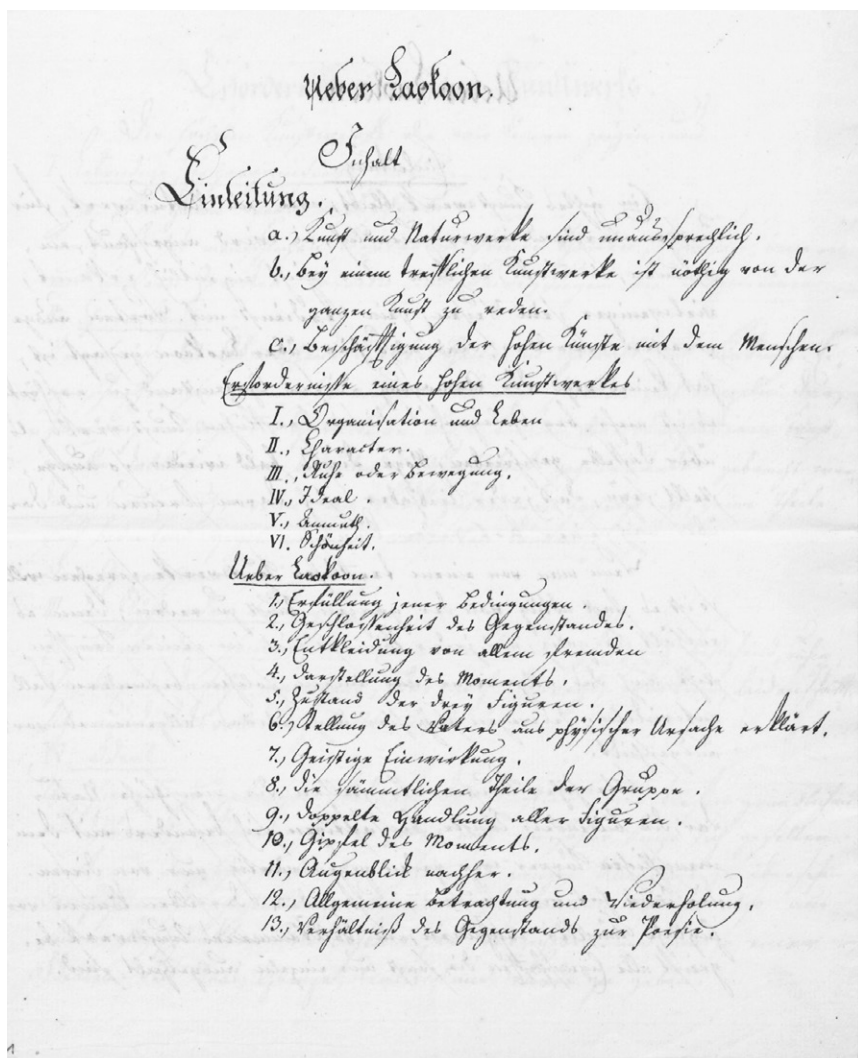 Ueber Laokoon.
Inhalt
Einleitung.
a.) Kunst und Naturwerke sind unaussprechlich.
b.) Bey einem trefflichen Kunstwerke ist nöthig von der
ganzen Kunst zu reden.
c.) Beschäftigung der hohen Künste mit dem Menschen.
Erfordernisse eines hohen Kunstwerkes
I.) Organisation und Leben
II.) Character.
III.) Ruhe oder Bewegung.
IV.) Ideal.
V.) Anmuth.
VI. Schönheit.
Ueber Laokoon.
1.) Erfüllung jener Bedingungen.
2.) Geschlossenheit des Gegenstandes.
3.) Entkleidung von allem Fremden
4.) Darstellung des Moments.
5.) Zustand der drey Figuren.
6.) Stellung des Vaters aus physischer Ursache erklärt.
7.) Geistige Einwirkung.
8.) die sämmtlichen Theile der Gruppe.
9.) doppelte Handlung aller Figuren.
10.) Gipfel des Moments.
11.) Augenblick nachher.
12.) Allgemeine Betrachtung und Wiederholung.
13.) Verhältniß des Gegenstands zur Poesie.
1